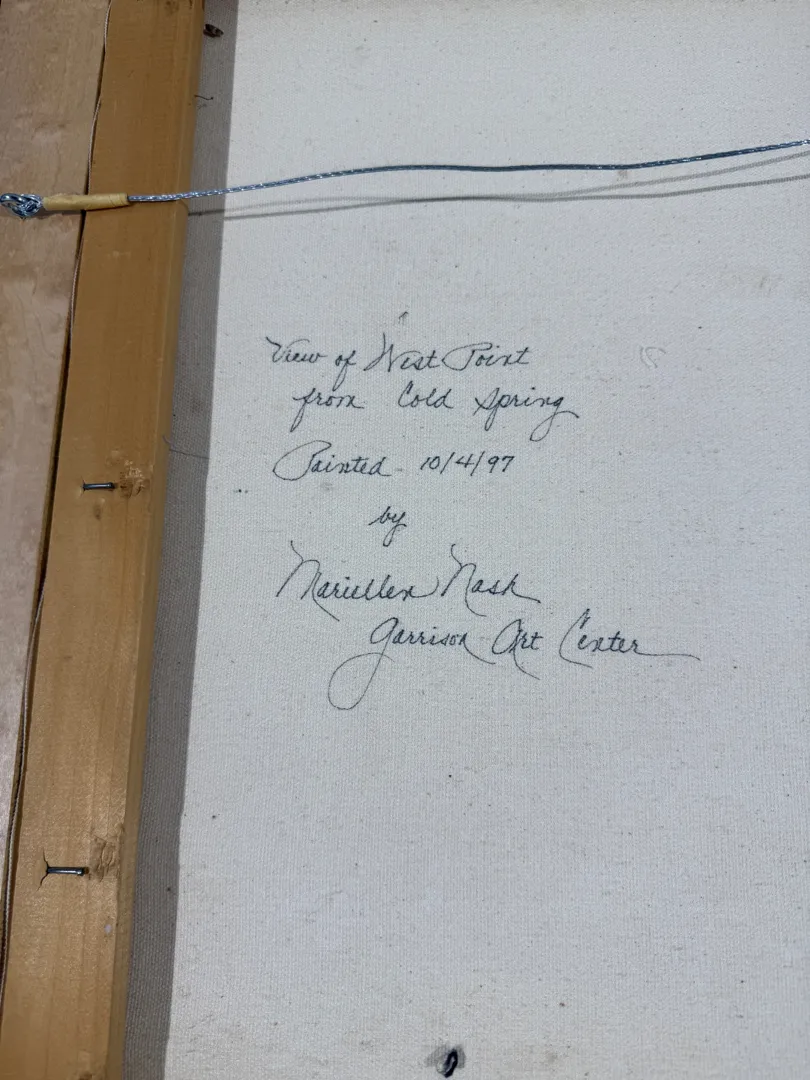 View of West Point
from Cold Spring
Painted - 10/4/97
by
Mariellen Nash
Garrison Art Center